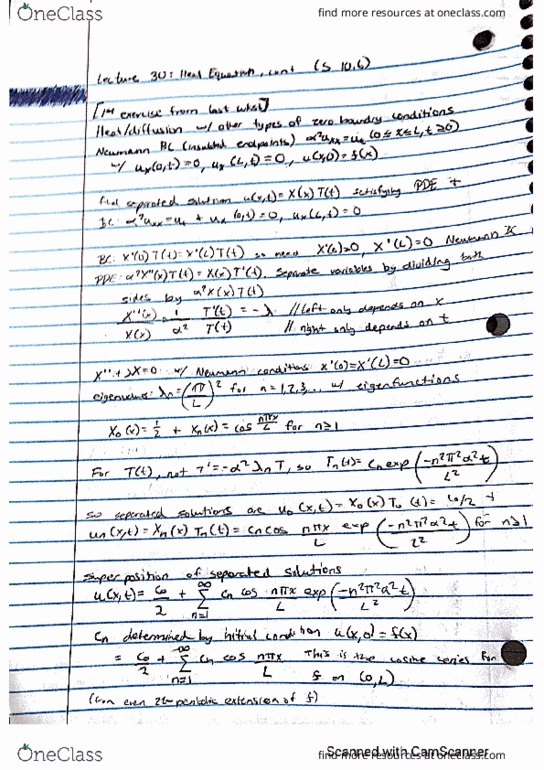 OneClass
find more resources at oneclass.com
Lecture 30: Heat Equation, cont (S 10.6)
[1st exercise from last what]
Heat/diffusion w/ other types of zero boundry conditions
Neumann BC (insulated endpoints) α²uxx = ut (0≤x≤L, t≥0)
w/ ux(0,t)=0, ux(L,t)=0, u(x,0)=f(x)
Find separated solution u(x,t)=X(x)T(t) satisfying PDE +
BC: α²uxx=ut + ux(0,t)=0, ux(L,t)=0
BC: X'(0)T(t)=X'(L)T(t) so need X'(0)=0, X'(L)=0 Neumann BC
PDE: α²X''(x)T(t)=X(x)T'(t). Separate variables by dividing both
sides by α²X(x)T(t)
X''(x)/X(x) = 1/α² T'(t)/T(t) = -λ //left only depends on x
//right only depends on t
X''+λX=0 w/ Neumann conditions X'(0)=X'(L)=0
eigenvalues: λn=(nπ/L)² for n=1,2,3,... w/ eigenfunctions
X0(x)=1/2 + Xn(x)=cos nπx/L for n≥1
For T(t), not T'=-α²λnT, so Tn(t)=cn exp(-n²π²α²t/L²)
so separated solutions are u0(x,t)=X0(x)T0(t)=c0/2 +
un(x,t)=Xn(x)Tn(t)=cn cos nπx/L exp(-n²π²α²t/L²) for n≥1
superposition of separated solutions
u(x,t)= c0/2 + ∞Σn=1 cn cos nπx/L exp(-n²π²α²t/L²)
cn determined by initial condition u(x,0)=f(x)
= c0/2 + ∞Σn=1 cn cos nπx/L This is the cosine series for
f on (0,L)
even extension of f)
Scanned with CamScanner
OneClass
find more resources at oneclass.com